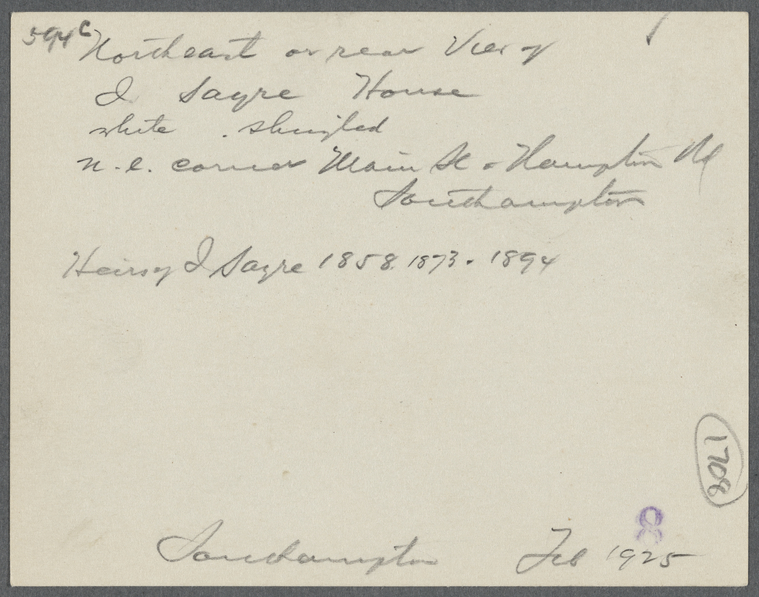 594C Northeast or rear View of
I Sayre House
white . shingled
n.e. corner Main St & Hampton Rd
Southampton
Heirs of I Sayre 1858. 1873. 1894
1708
8
Southampton Feb 1925